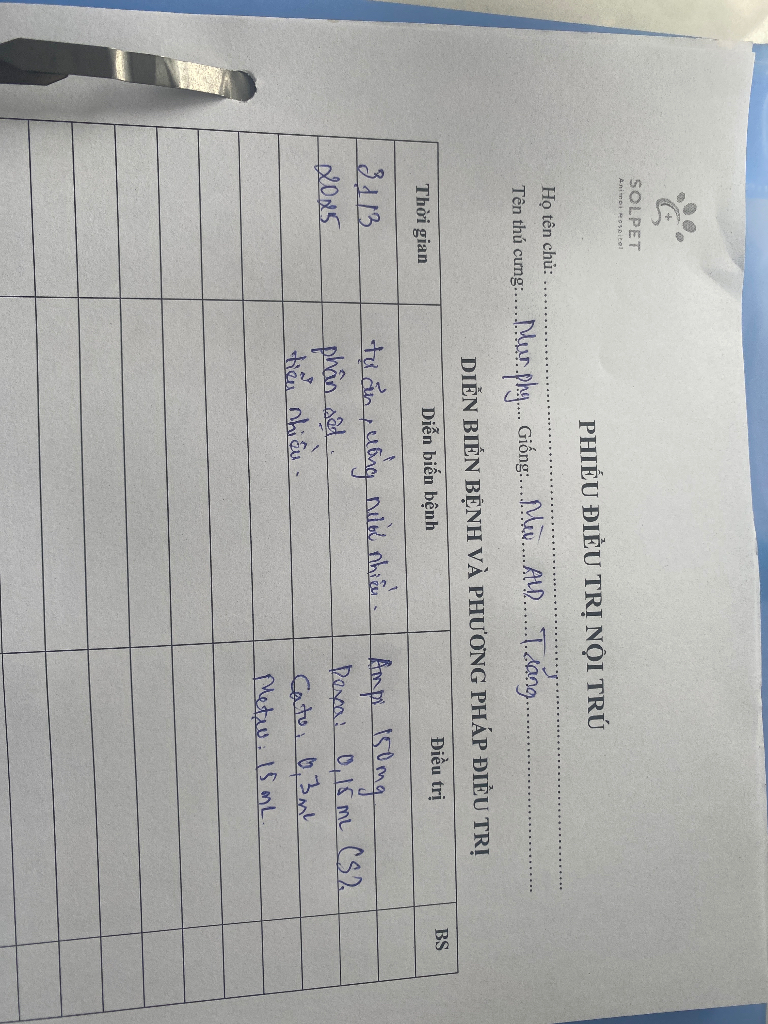 SOLPET
Animal Hospital
PHIẾU ĐIỀU TRỊ NỘI TRÚ
Họ tên chủ:
Tên thú cưng: Murphy Giống: Mèo ALD Trắng
DIỄN BIẾN BỆNH VÀ PHƯƠNG PHÁP ĐIỀU TRỊ
Thời gian Diễn biến bệnh Điều trị BS
31/3 tự ăn, uống nước nhiều. Ampi 150mg
2025 phân sệt. Dexa: 0,15mL CS2
tiểu nhiều. Cato: 0,3mL
Metro: 15mL.